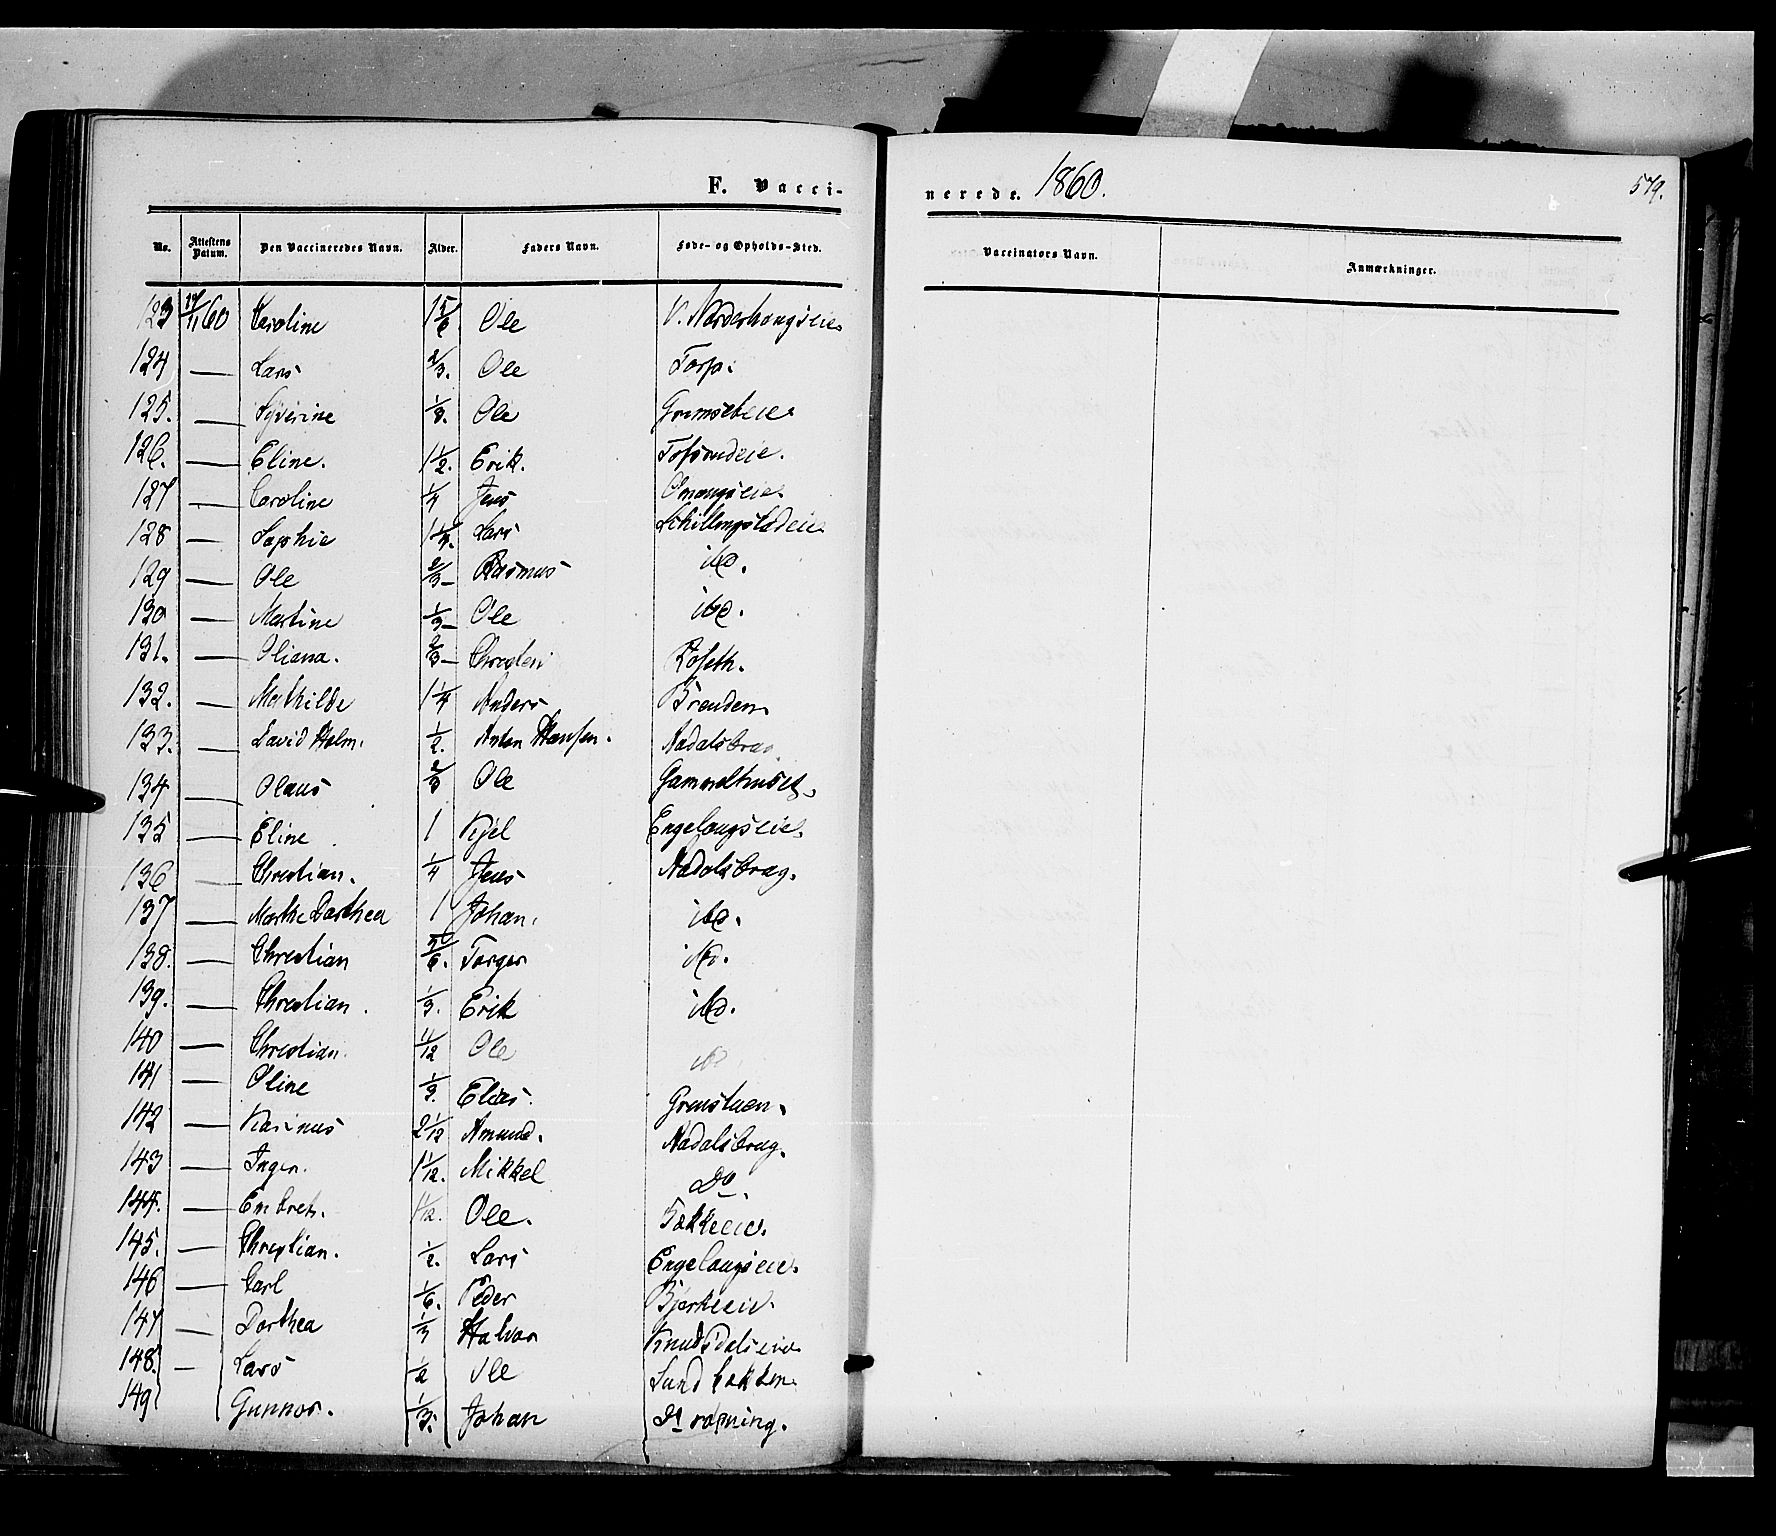 F. Vacci-
nerede. 1860.
579.
No. Attestens Datum. Den Vaccineredes Navn. Alder. Faders Navn. Føde- og Opholds-Sted.
Vaccinators Navn. Anmærkninger.
123 60 Caroline 1 5/6 Ole V. Norderhougseie
124 — Lars 2/3. Ole Torp.
125. — Syverine Ole
126. — Eline. 1 1/2. Erik.
127 — Caroline 1/4 Jens
128 — Sophie Lars Schillingstadeie
129 — Ole 2/3 — Rasmus ibd.
130 — Martine 1/3 — Ole ibd.
131. — Oliana. 2/3 — Christen
132. — Mathilde 1 1/4 Anders Brenden
133. — David Holm. 1/2. Anton Hansen. Aadalsbrug
134 — Olaus 2/3 Ole
135 — Eline 1 Kjel Engelaugseie.
136 — Christian. 1/4 Jens Aadalsbrug.
137 — Marthe Dorthea 1 Johan. ibd.
138. — Christian 5/6. Torger ibd.
139. — Christian. 1/3. Erik ibd.
140 — Christian. 11/12 Ole
141 — Oline 1/3. Elias.
142 — Karinus 2 1/12 Amund. Aadalsbrug.
143 — Inger. 1 1/12. Mikkel Do.
144. — Embret. Ole.
145. — Christian. 1/2. Lars Engelaugseie.
146 — Carl 1/6. Peder Bjerkeeie.
147 — Dorthea 1/3 Halvor Knudsdalseie
148. — Lars 1/2 Ole Sundbakken
149 Gunnor. 1/3. Johan